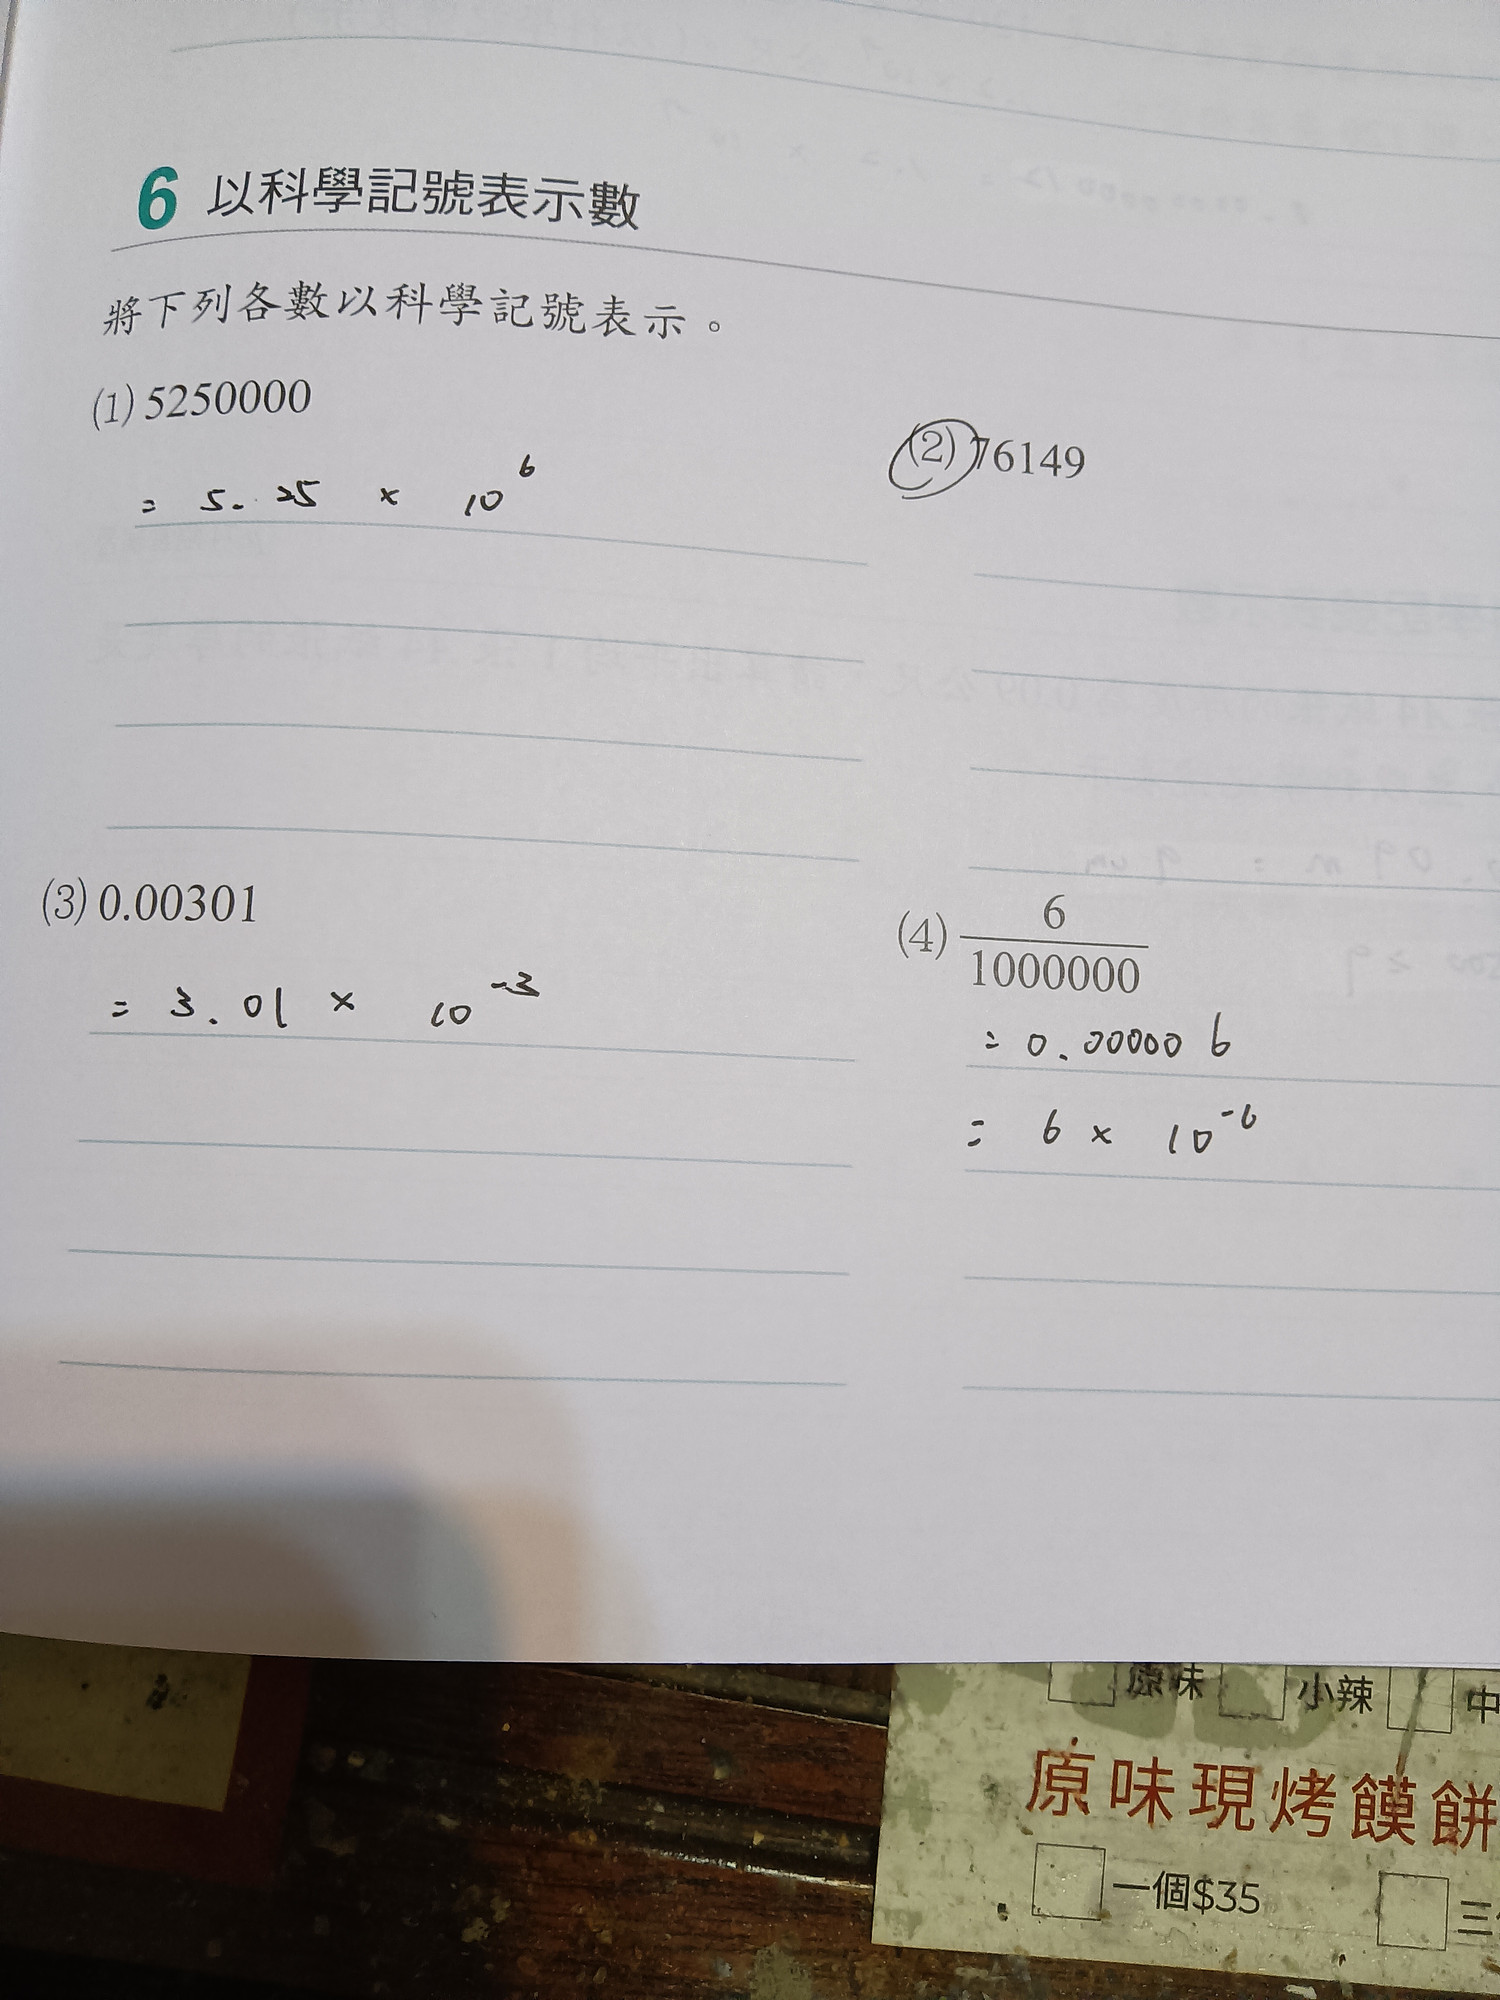 6 以科學記號表示數
將下列各數以科學記號表示。
(1) 5250000
= 5.25 × 10⁶
(2) 76149
(3) 0.00301
= 3.01 × 10⁻³
(4) 6/1000000
= 0.000006
= 6 × 10⁻⁶
原味 小辣 中
原味現烤饃餅
一個$35 三